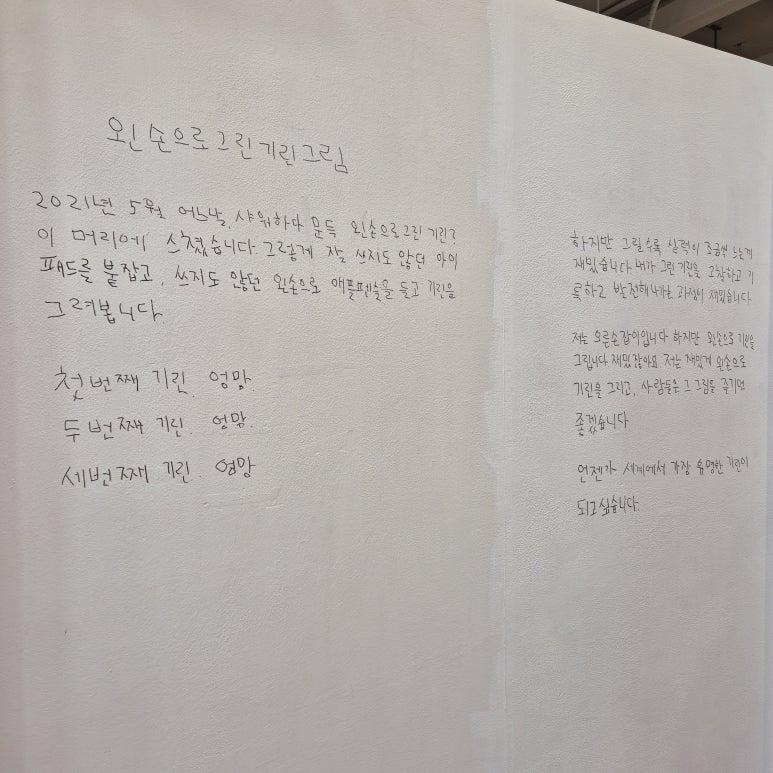 왼손으로그린기린그림
2021년 5월 어느날, 샤워하다 문득 왼손으로그린 기린?
이 머리에 스쳤습니다. 그렇게 잘 쓰지도 않던 아이
패드를 붙잡고, 쓰지도 않던 왼손으로 애플펜슬을 들고 기린을
그려봅니다
첫번째 기린. 엉망.
두번째 기린. 엉망.
세번째 기린. 엉망
하지만 그릴수록 실력이 조금씩 느는게
재밌습니다. 내가 그린 기린을 고찰하고 기
록하고 발전해나가는 과정이 재밌습니다
저는 오른손잡이입니다 하지만 왼손으로 기린을
그립니다 재밌잖아요 저는 재밌게 왼손으로
기린을 그리고, 사람들은 그 그림을 즐기면
좋겠습니다
언젠가 세계에서 가장 유명한 기린이
되고싶습니다.